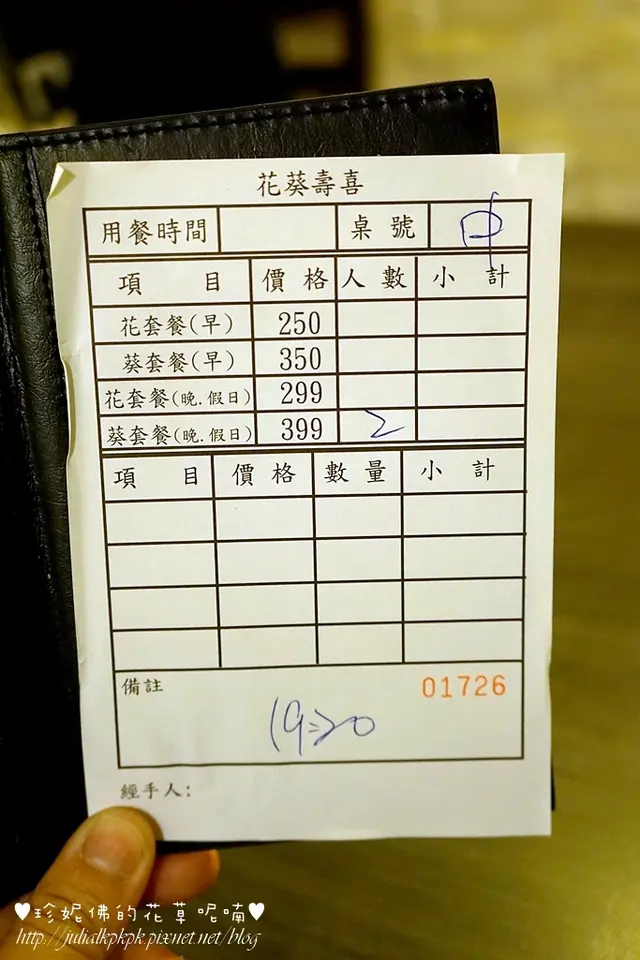 花葵壽喜
用餐時間 桌號 中
項目 價格 人數 小計
花套餐(早) 250
葵套餐(早) 350
花套餐(晚.假日) 299
葵套餐(晚.假日) 399 2
項目 價格 數量 小計
備註 01726
19:20
經手人:
♥珍妮佛的花草呢喃♥
http://julialkpkpk.pixnet.net/blog